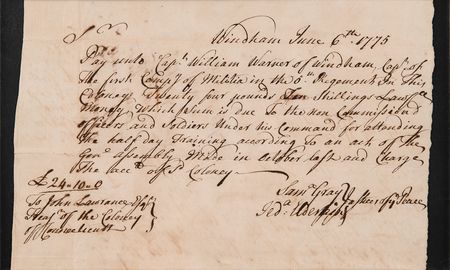 Windham June 6th 1775
Sr
Pay unto Capt William Warner of Windham, Capt of
the first Compy of Militia in the 5th Regement In This
Coloney Twenty four pounds Ten Shillings Lawfll
Money Which Sum is due to the non Commissiond
officers and Soldiers Under his Command for attending
The half day Training according to an act of the
Genl assembly Made in October last and Charge
The acct of sd Coloney
£ 24-10-0
To John Lawrance Esqr
Treasr of the Coloney
of Connecticut
Saml Gray
Jedh Elderkin
Justices of ye Peace